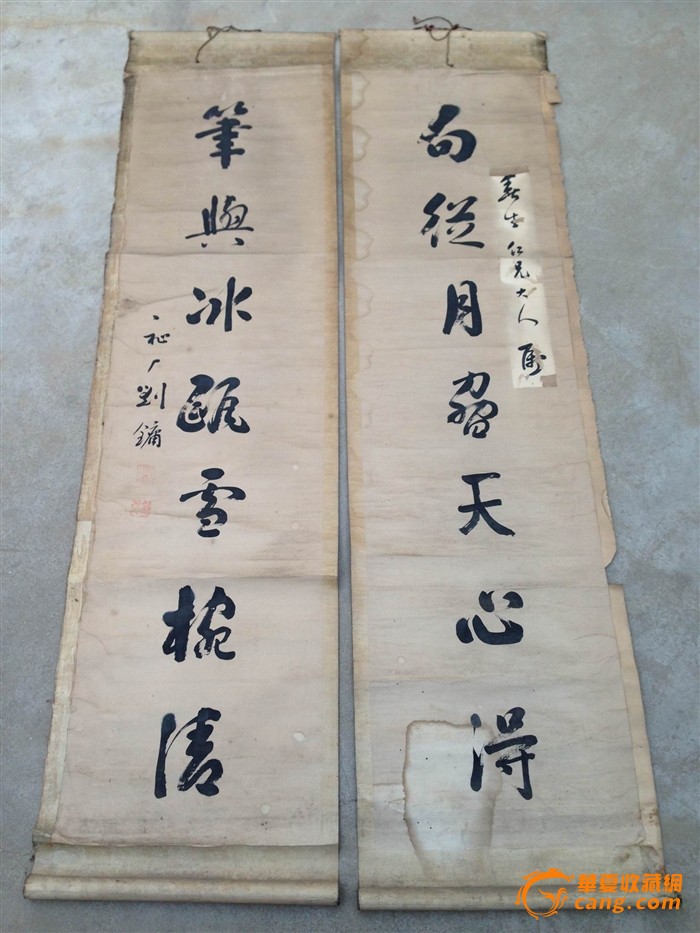 句從月脅天心得
仁兄大人屬
筆與冰甌雪椀清
劉鏞
華夏收藏網
cang.com